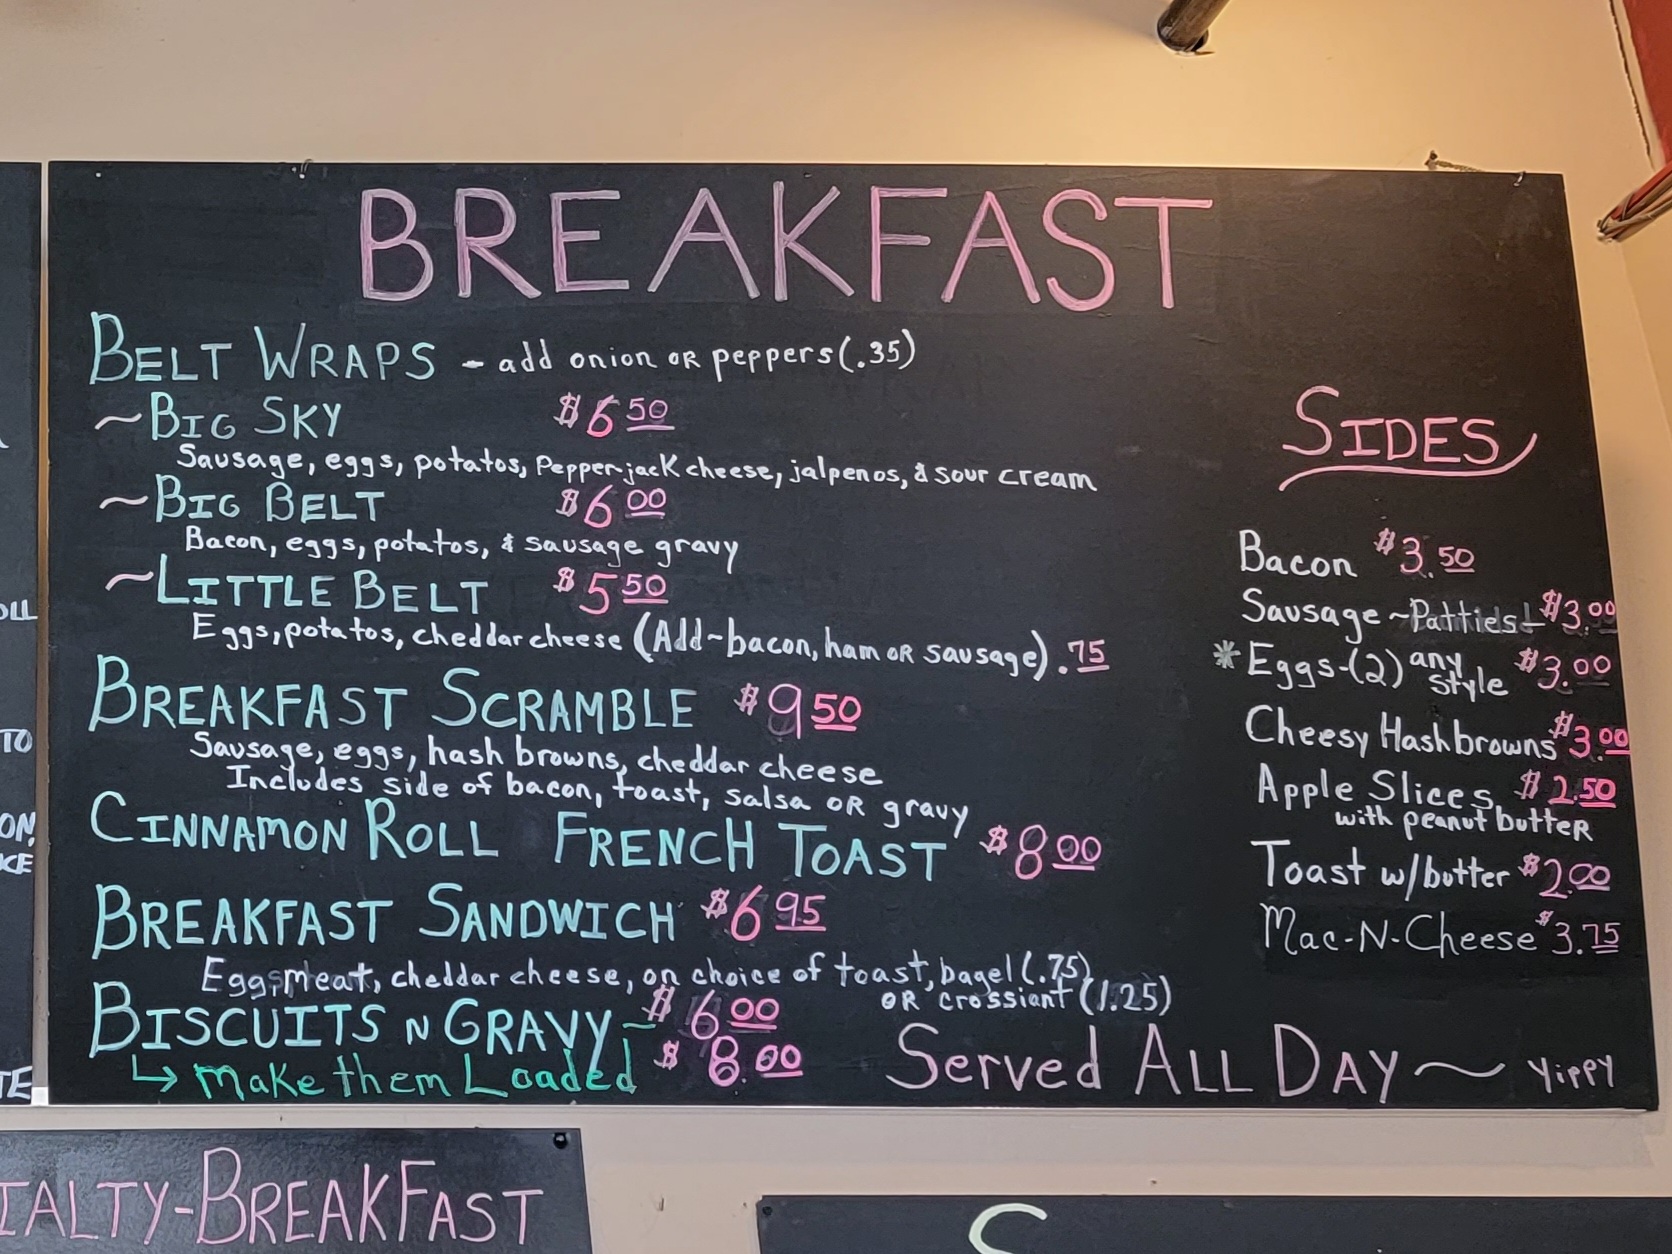 BREAKFAST
BELT WRAPS - add onion OR peppers (.35)
~BIG SKY $6 50
Sausage, eggs, potatos, Pepperjack cheese, jalpenos, & sour cream
~BIG BELT $6 00
Bacon, eggs, potatos, & sausage gravy
~LITTLE BELT $5 50
Eggs, potatos, cheddar cheese (Add~bacon, ham OR sausage) .75
BREAKFAST SCRAMBLE $9 50
Sausage, eggs, hash browns, cheddar cheese
Includes side of bacon, toast, salsa OR gravy
CINNAMON ROLL FRENCH TOAST $8 00
BREAKFAST SANDWICH $6 95
Eggs, meat, cheddar cheese, on choice of toast, bagel (.75)
OR crossiant (1.25)
BISCUITS N GRAVY ~ $6 00
↳ make them Loaded $8.00
SIDES
Bacon $3.50
Sausage ~Patties- $3.00
*Eggs-(2) any style $3.00
Cheesy Hashbrowns $3.00
Apple Slices $2.50
with peanut butteR
Toast w/butter $2.00
Mac-N-Cheese $3.75
Served ALL DAY ~ yippy
OLL
TO
ON,
TE
IALTY-BREAKFAST